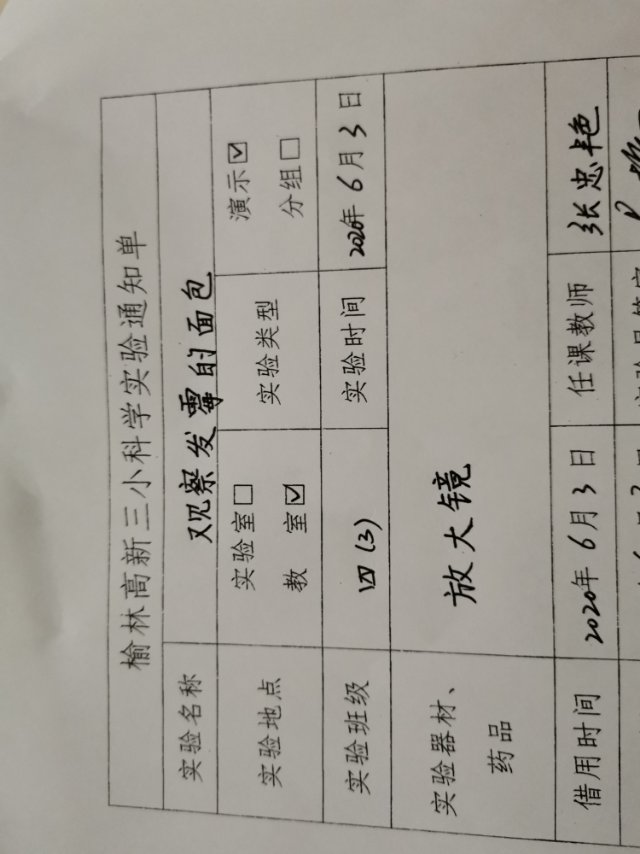 榆林高新三小科学实验通知单
实验名称 观察发霉的面包
实验地点 实验室□ 教 室☑ 实验类型 演示☑ 分组□
实验班级 四(3) 实验时间 2020年6月3日
实验器材、药品 放大镜
借用时间 2020年6月3日 任课教师 张忠艳